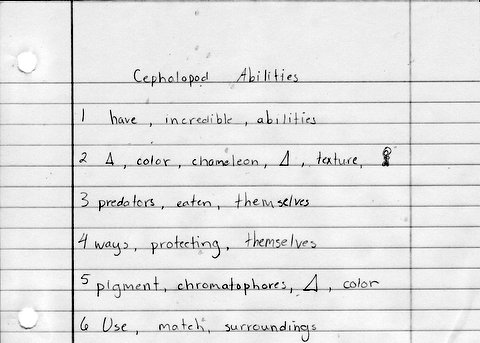 Cephalopod Abilities
1 have, incredible, abilities
2 Δ, color, chameleon, Δ, texture,
3 predators, eaten, themselves
4 ways, protecting, themselves
5 pigment, chromatophores, Δ, color
6 Use, match, surroundings